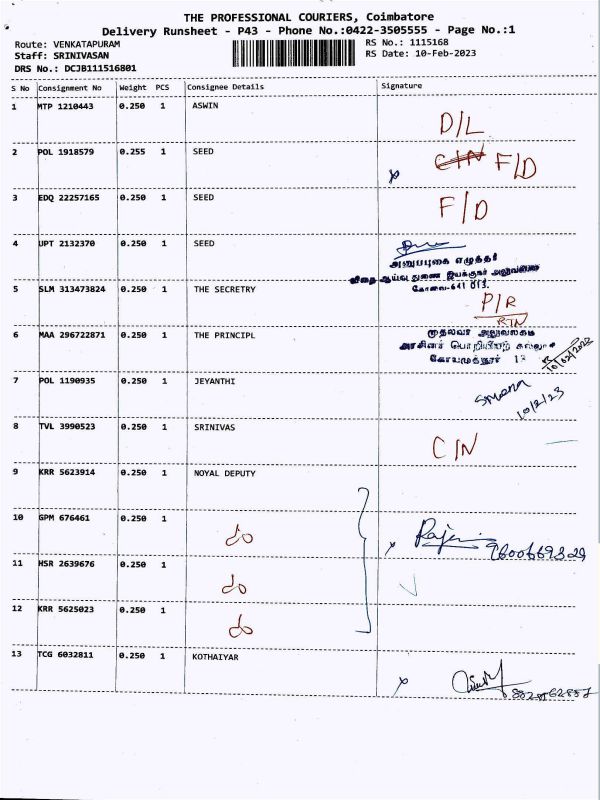 THE PROFESSIONAL COURIERS, Coimbatore
Delivery Runsheet - P43 - Phone No.:0422-3505555 - Page No.:1
Route: VENKATAPURAM RS No.: 1115168
Staff: SRINIVASAN RS Date: 10-Feb-2023
DRS No.: DCJB111516801
S No Consignment No Weight PCS Consignee Details Signature
1 MTP 1210443 0.250 1 ASWIN
D/L
2 POL 1918579 0.255 1 SEED
F/D
3 EDQ 22257165 0.250 1 SEED
F/D
4 UPT 2132370 0.250 1 SEED
அனுப்புகை எழுத்தர்
விதை ஆய்வு துணை இயக்குநர் அலுவலகம்
கோவை-641 013.
5 SLM 313473824 0.250 1 THE SECRETRY
P/R
RTN
6 MAA 296722871 0.250 1 THE PRINCIPL
முதல்வர் அலுவலகம்
அரசினர் பொறியியற் கல்லூரி
கோயமுத்தூர் 13
10/02/2023
7 POL 1190935 0.250 1 JEYANTHI
10/2/23
8 TVL 3990523 0.250 1 SRINIVAS
C/N
9 KRR 5623914 0.250 1 NOYAL DEPUTY
10 GPM 676461 0.250 1
do
11 HSR 2639676 0.250 1
do
12 KRR 5625023 0.250 1
do
13 TCG 6032811 0.250 1 KOTHAIYAR